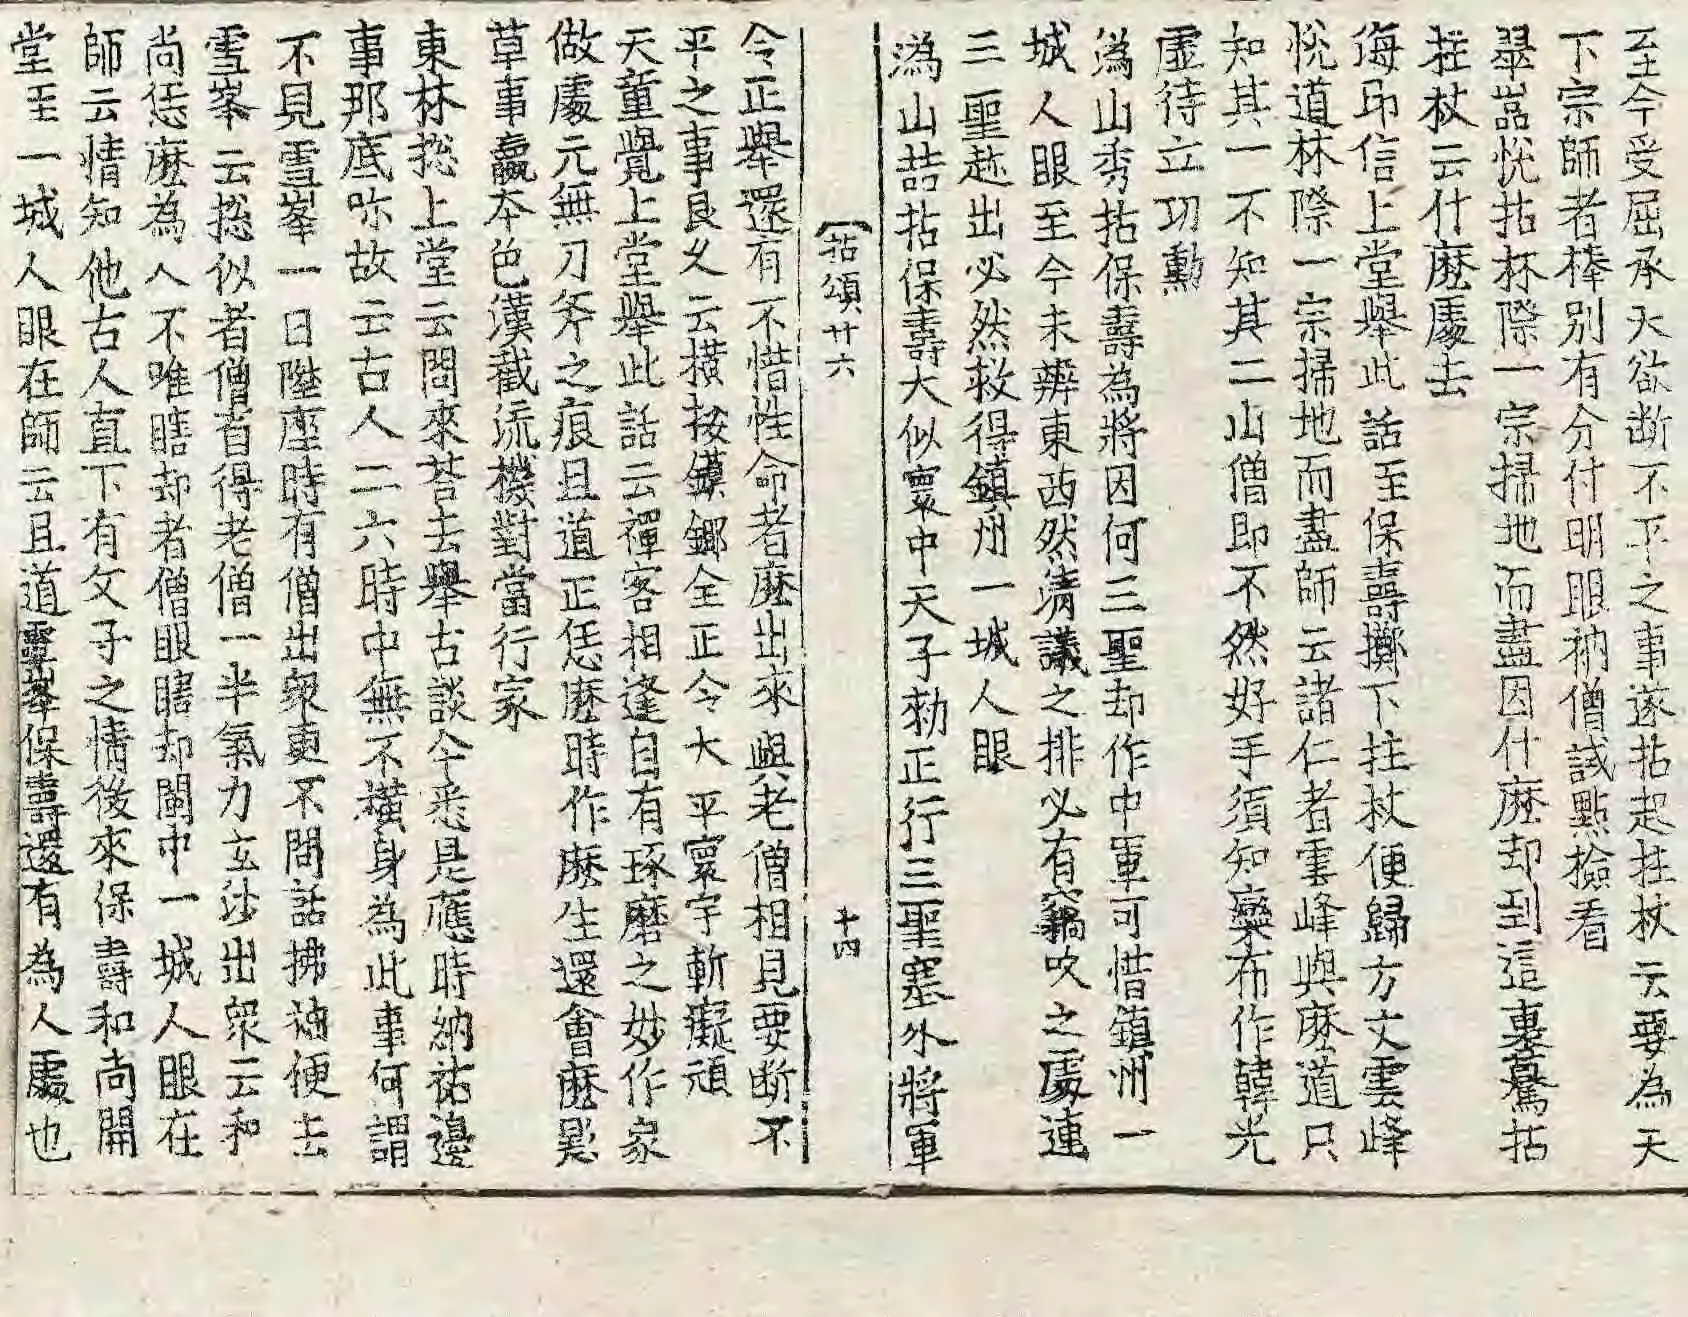 至今受屈承天欲断不平之事遂拈起拄杖云要為天
下宗師者棒別有分付明眼衲僧試點檢看
翠嵓悅拈林際一宗掃地而盡因什麽却到這裏驀拈
拄杖云什麽處去
海印信上堂舉此話至保壽擲下拄杖便歸方丈雲峰
悅道林際一宗掃地而盡師云諸仁者雲峰與麽道只
知其一不知其二山僧即不然好手須知欒布作韓光
虛待立功勳
潙山秀拈保壽為將因何三聖却作中軍可惜鎮州一
城人眼至今未辨東西然清議之排必有竊吹之處連
三聖趂出必然救得鎮州一城人眼
潙山喆拈保壽大似寰中天子勑正行三聖塞外將軍
拈頌廿六 十四
令正舉還有不惜性命者麽出來與老僧相見要断不
平之事良久云橫按鏌鎁全正令大平寰宇斬癡頑
天童覺上堂舉此話云禪客相逢自有琢磨之妙作家
做處元無刃斧之痕且道正恁麽時作麽生還會麽影
草事贏本色漢截流機對當行家
東林揔上堂云問來荅去舉古談今悉是應時納祜邊
事那底㫾故云古人二六時中無不橫身為此事何謂
不見雪峯一日陞座時有僧出衆更不問話拂袖便去
雪峯云揔似者僧省得老僧一半氣力玄沙出衆云和
尚恁麽為人不唯瞎却者僧眼瞎却閩中一城人眼在
師云情知他古人直下有父子之情後來保壽和尚開
堂至一城人眼在師云且道雪峯保壽還有為人處也